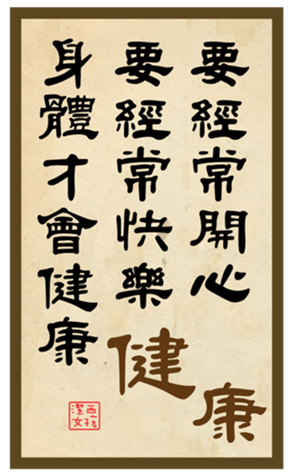 要經常開心
要經常快樂
身體才會健康
健康